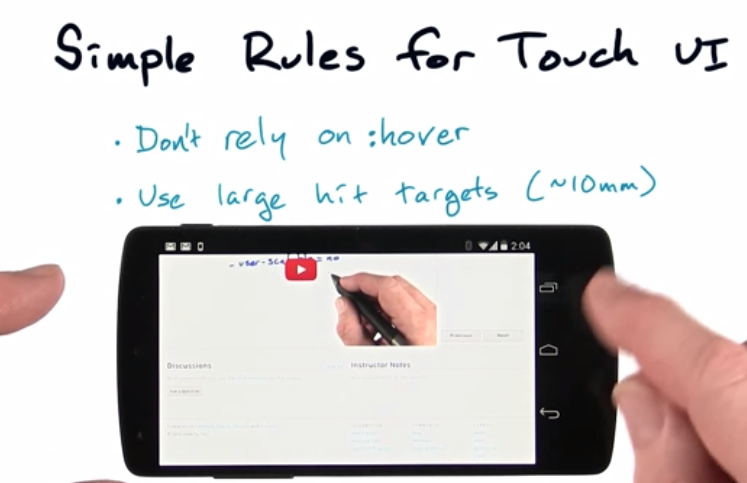 Simple Rules for Touch UI
• Don't rely on :hover
• Use large hit targets (~10mm)
2:04
Previous Next
Discussions Instructor Notes